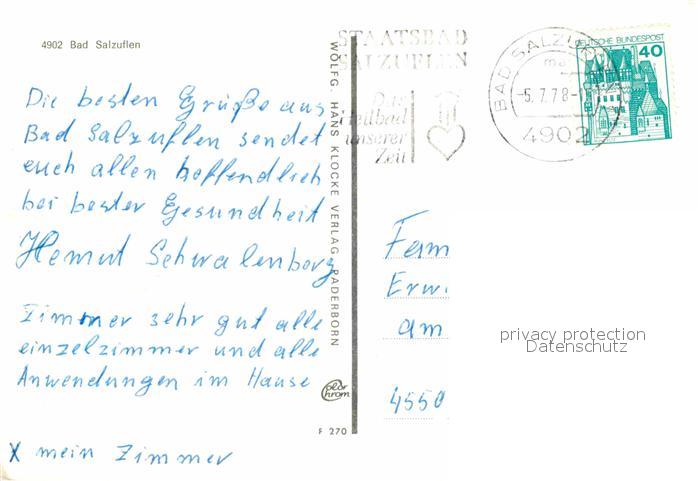 4902 Bad Salzuflen
Die besten Grüße aus
Bad Salzuflen sendet
euch allen hoffendlich
bei bester Gesundheit
Hemut Schwalenborg
Zimmer sehr gut alle
einzelzimmer und alle
Anwendungen im Hause
X mein Zimmer
WOLFG. HANS KLOCKE VERLAG PADERBORN
Color
chrom
F 270
STAATSBAD
SALZUFLEN
Das
Heilbad
unserer
Zeit
BAD SALZU
-5.7.78-
4902
DEUTSCHE BUNDESPOST
40
Fam
Erw.
am
4550
privacy protection
Datenschutz